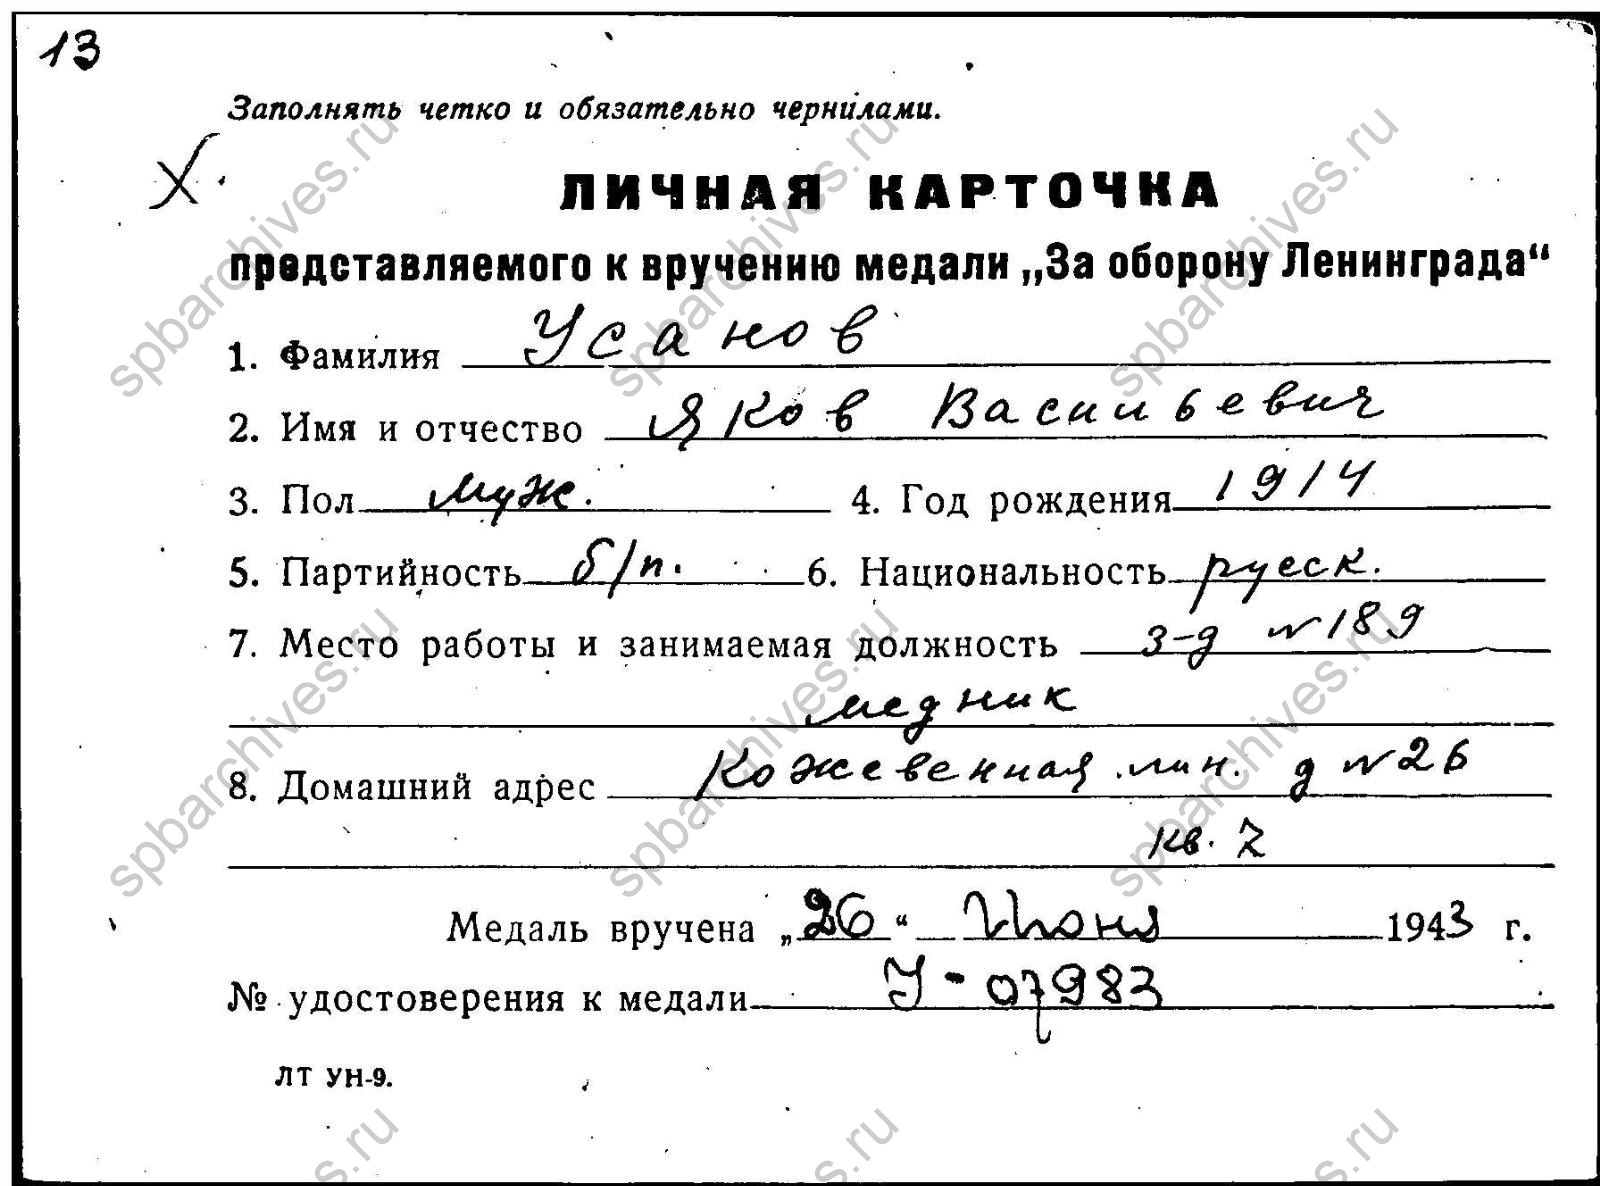 13
Заполнять четко и обязательно чернилами.
X
ЛИЧНАЯ КАРТОЧКА
представляемого к вручению медали „За оборону Ленинграда“
1. Фамилия Усанов
2. Имя и отчество Яков Васильевич
3. Пол муж. 4. Год рождения 1914
5. Партийность б/п. 6. Национальность русск.
7. Место работы и занимаемая должность з-д N 189
медник
8. Домашний адрес Кожевенная лин. д N 26
кв. 2
Медаль вручена „26“ Июня 1943 г.
№ удостоверения к медали У-07983
ЛТ УН-9.
spbarchives.ru
spbarchives.ru
spbarchives.ru
spbarchives.ru
spbarchives.ru
spbarchives.ru
s.ru
s.ru
s.ru